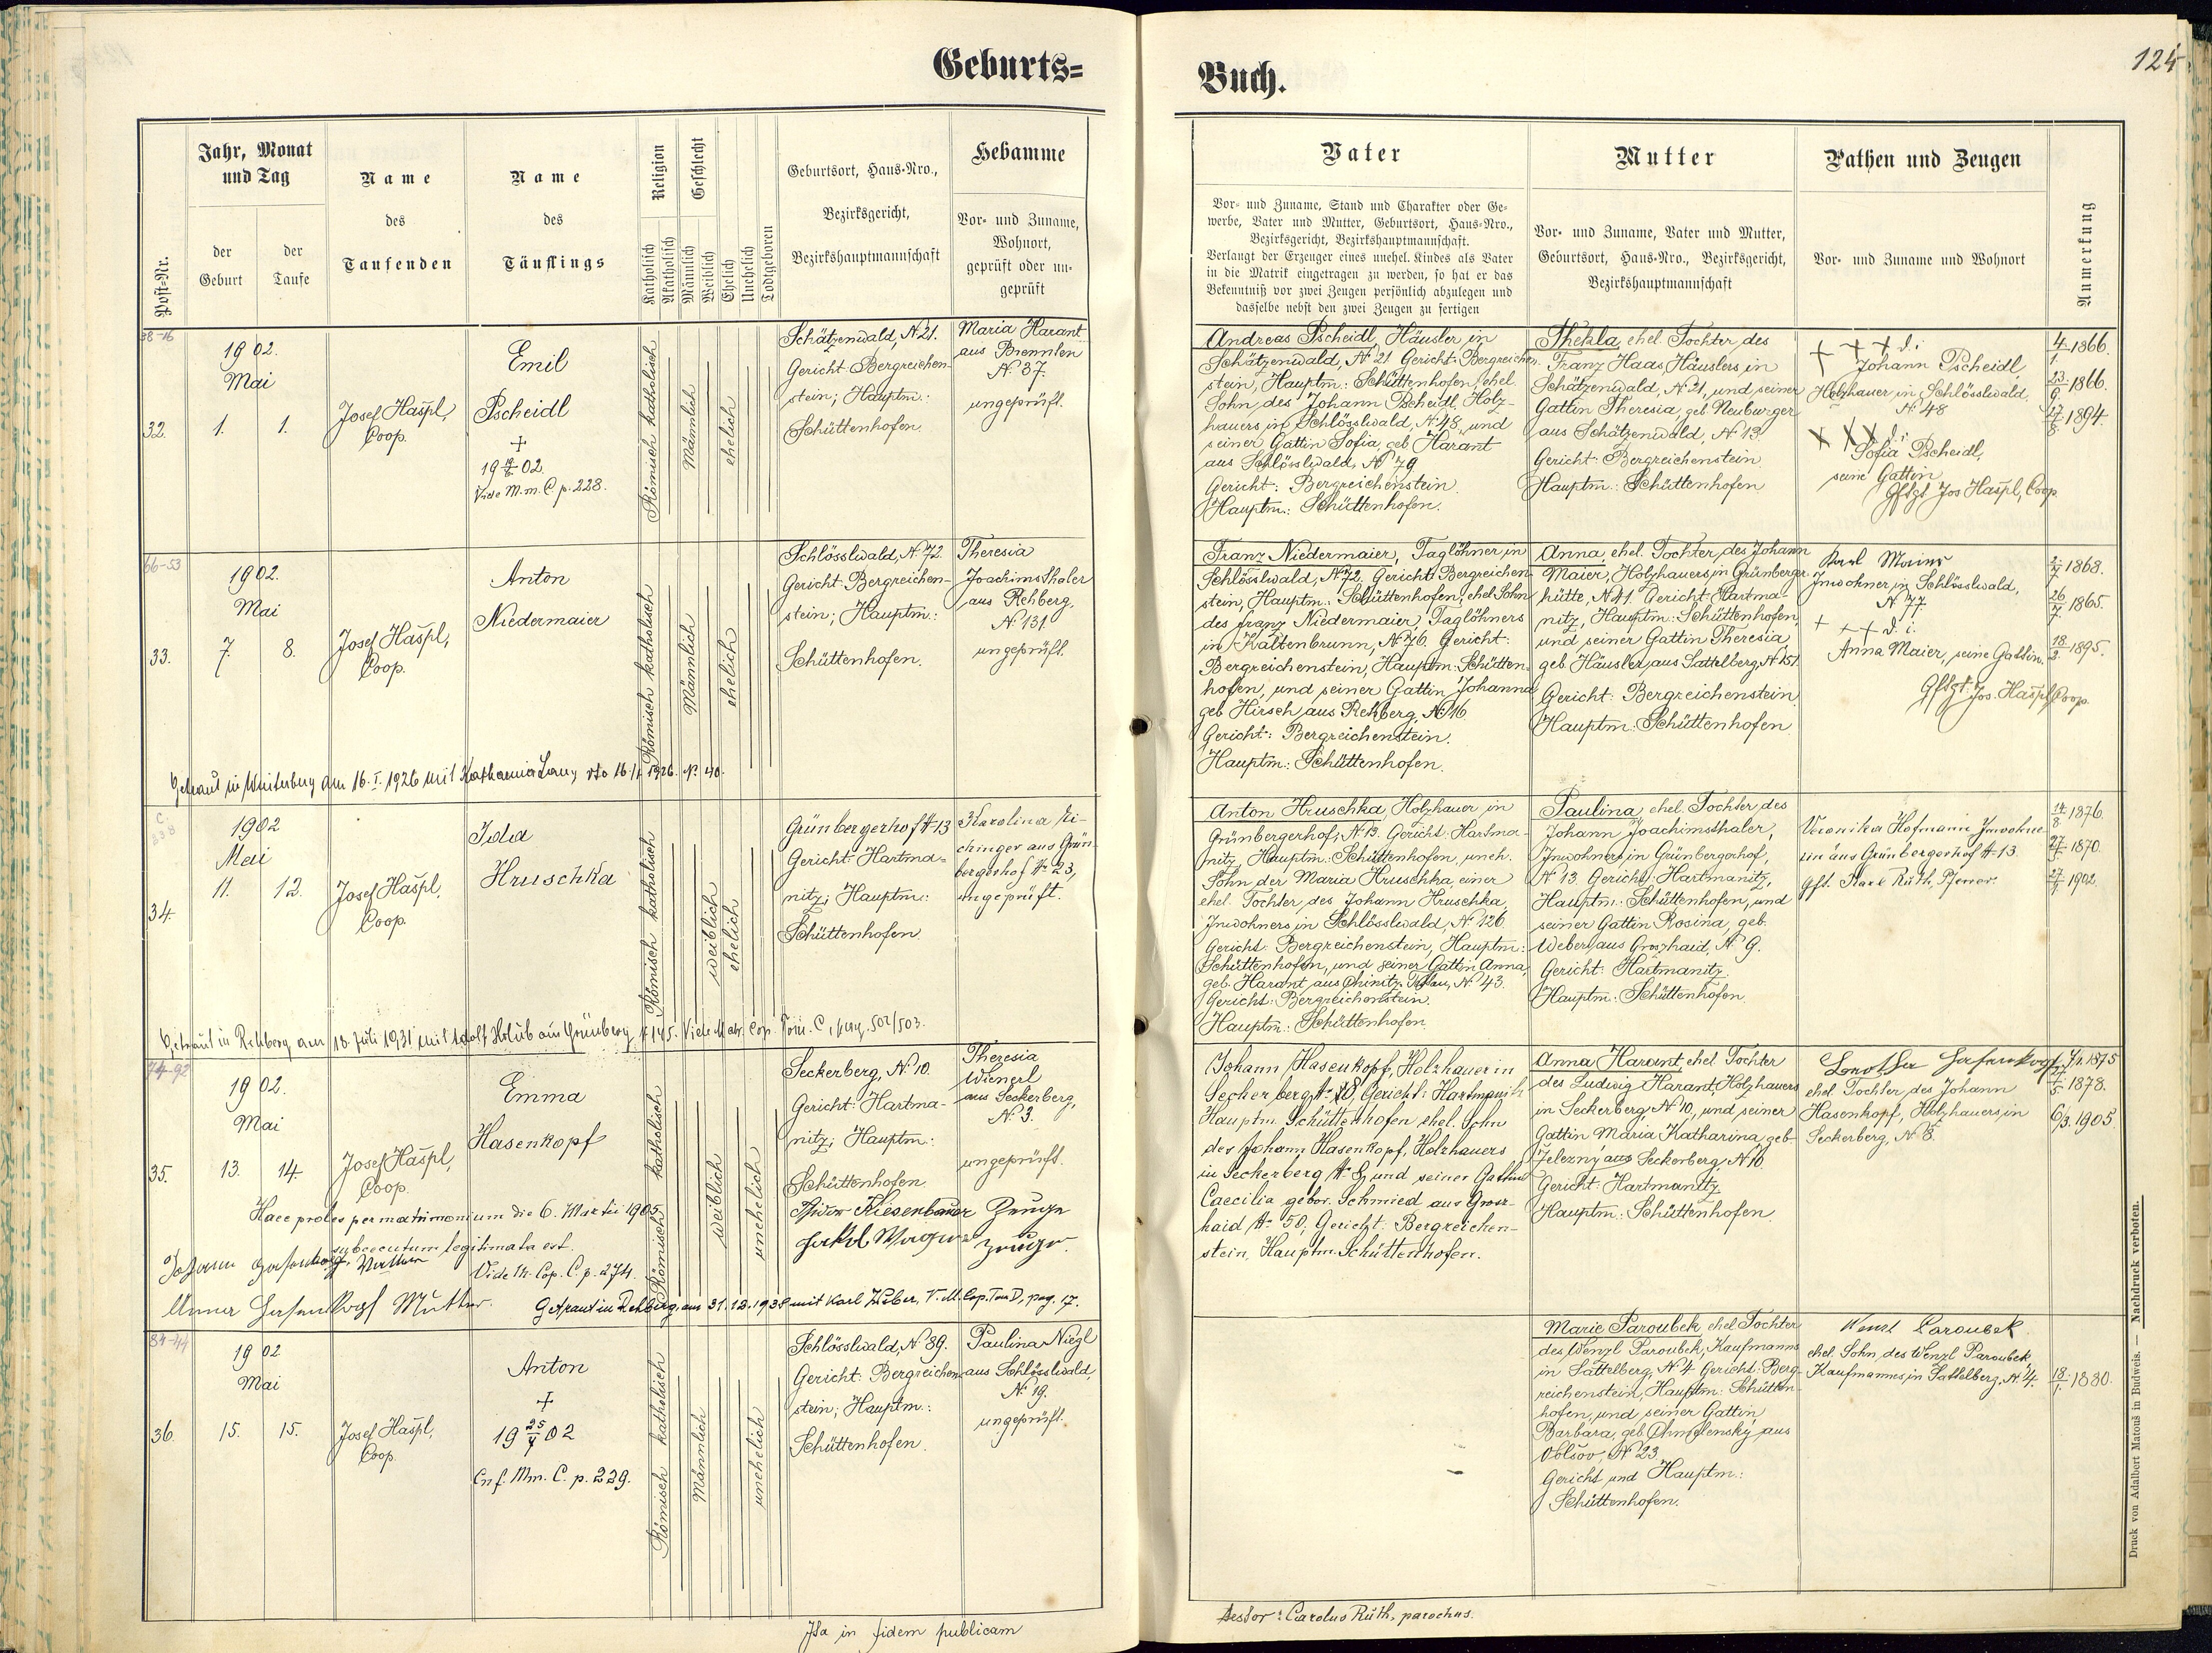 Geburts=
Post-Nr.
Jahr, Monat
und Tag
der
Geburt
der
Taufe
Name
des
Taufenden
Name
des
Täuflings
Religion
Katholisch
Akatholisch
Geschlecht
Männlich
Weiblich
Ehelich
Unehelich
Todtgeboren
Geburtsort, Haus-Nro.,
Bezirksgericht,
Bezirkshauptmannschaft
Hebamme
Vor- und Zuname,
Wohnort,
geprüft oder un-
geprüft
38-16
32.
1902.
Mai
1.
1.
Josef Haspl,
Coop.
Emil
Pscheidl
+
19 02.
Vide M. m. C. p. 228.
Römisch katholisch
Männlich
ehelich
Schätzenwald, N. 21.
Gericht: Bergreichen-
stein; Hauptm.:
Schüttenhofen.
Maria Harant
aus Brennten
N. 37.
ungeprüft.
66-53
33.
1902.
Mai
7.
8.
Josef Haspl,
Coop.
Anton
Niedermaier
Römisch katholisch
Männlich
ehelich
Schlösslwald, N. 72.
Gericht: Bergreichen-
stein; Hauptm.:
Schüttenhofen.
Theresia
Joachimsthaler
aus Rehberg,
N. 131.
ungeprüft.
Getraut in Winterberg am 16. I. 1926 mit Katharina 1926. N. 40.
34.
1902
Mai
11.
12.
Josef Haspl,
Coop.
Ida
Hruschka
Römisch katholisch
weiblich
ehelich
Grünbergerhof N 13
Gericht: Hartma-
nitz; Hauptm.:
Schüttenhofen
Karolina Ki-
chinger aus Grün-
bergerhof N. 23,
ungeprüft.
Getraut in Rehberg am 18. Juli 1931 mit Adolf Holub aus Grünberg N 145. Vide Matr. Cop. Tom. C, pag. 502/503.
74-92
35.
1902.
Mai
13.
14.
Josef Haspl,
Coop.
Emma
Hasenkopf
Römisch katholisch
weiblich
unehelich
Seckerberg, N. 10.
Gericht: Hartma-
nitz; Hauptm.:
Schüttenhofen.
Theresia
Wienerl
aus Seckerberg,
N. 3.
ungeprüft.
Haec proles per matrimonium die 6. Martii 1905
subsecutum legitimata est.
Vide M. Cop. C. p. 274.
Riesenbauer Zeuge
Jakob Zeuge.
Johann Hasenkopf, Vater
Anna Hasenkopf Mutter.
Getraut in Rehberg am 31.12.1938 mit Karl Weber, V. M. Cop. Tom D, pag. 17.
84-44
36.
1902
Mai
15.
15.
Josef Haspl,
Coop.
Anton
+
19 25/7 02
Cnf. Mm. C. p. 229.
Römisch katholisch
Männlich
unehelich
Schlösslwald, N. 89.
Gericht: Bergreichen-
stein; Hauptm.:
Schüttenhofen.
Paulina Niegl
aus Schlösslwald,
N. 19.
ungeprüft.
Ita in fidem publicam
Buch.
124
Vater
Vor- und Zuname, Stand und Charakter oder Ge-
werbe, Vater und Mutter, Geburtsort, Haus-Nro.,
Bezirksgericht, Bezirkshauptmannschaft.
Verlangt der Erzeuger eines unehel. Kindes als Vater
in die Matrik eingetragen zu werden, so hat er das
Bekenntniß vor zwei Zeugen persönlich abzulegen und
dasselbe nebst den zwei Zeugen zu fertigen
Mutter
Vor- und Zuname, Vater und Mutter,
Geburtsort, Haus-Nro., Bezirksgericht,
Bezirkshauptmannschaft
Pathen und Zeugen
Vor- und Zuname und Wohnort
Anmerkung
Andreas Pscheidl, Häusler in
Schätzenwald, N. 21. Gericht: Bergreichen-
stein, Hauptm.: Schüttenhofen, ehel.
Sohn des Johann Pscheidl, Holz-
hauers in Schlösslwald, N. 48, und
seiner Gattin Sofia, geb. Harant
aus Schlösslwald, N. 79
Gericht: Bergreichenstein.
Hauptm.: Schüttenhofen.
Thekla, ehel. Tochter des
Franz Haas, Häuslers in
Schätzenwald, N. 21, und seiner
Gattin Theresia, geb. Neuburger
aus Schätzenwald, N. 13.
Gericht: Bergreichenstein
Hauptm.: Schüttenhofen
+ + + d. i.
Johann Pscheidl
Holzhauer in Schlösslwald,
N. 48
X X X d. i.
Sofia Pscheidl,
seine Gattin
Gftgt Jos Haspl, Coop.
4/1. 1866.
23/9. 1866.
27/8. 1894.
Franz Niedermaier, Taglöhner in
Schlösslwald, N. 72. Gericht: Bergreichen-
stein, Hauptm.: Schüttenhofen, ehel. Sohn
des Franz Niedermaier, Taglöhners
in Kaltenbrunn, N. 76. Gericht:
Bergreichenstein, Hauptm: Schütten-
hofen, und seiner Gattin Johanna
geb Hirsch aus Rehberg, N. 16.
Gericht: Bergreichenstein.
Hauptm.: Schüttenhofen.
Anna, ehel. Tochter des Johann
Maier, Holzhauers in Grünberger-
hütte, N. 41. Gericht: Hartma-
nitz, Hauptm.: Schüttenhofen,
und seiner Gattin Theresia
geb Häusler aus Sattelberg, N. 151.
Gericht: Bergreichenstein
Hauptm.: Schüttenhofen.
Karl
Inwohner in Schlösslwald,
N. 77.
+ + + d. i.
Anna Maier, seine Gattin.
Gftgt. Jos. Haspl, Coop.
2/7 1868.
26/7. 1865.
18/2. 1895.
Anton Hruschka, Holzhauer in
Grünbergerhof, N. 13. Gericht: Hartma-
nitz, Hauptm.: Schüttenhofen, uneh.
Sohn der Maria Hruschka, einer
ehel. Tochter des Johann Hruschka,
Inwohners in Schlösslwald, N. 126.
Gericht: Bergreichenstein, Hauptm.:
Schüttenhofen, und seiner Gattin Anna,
geb. Harant aus Chinitz-Tettau, N. 43.
Gericht: Bergreichenstein.
Hauptm.: Schüttenhofen
Paulina, ehel. Tochter des
Johann Joachimsthaler,
Inwohners in Grünbergerhof,
N. 13. Gericht: Hartmanitz,
Hauptm.: Schüttenhofen, und
seiner Gattin Rosina, geb.
Weberl aus Groszhaid, N. 9.
Gericht: Hartmanitz.
Hauptm.: Schüttenhofen.
Veronika Hofmann Inwohne-
rin aus Grünbergerhof N 13.
Gft. Karl Rúth, Pfarrer.
14/8 1876.
1870.
1902.
Johann Hasenkopf, Holzhauer in
Seckerberg N. 8, Gericht: Hartmanitz
Hauptm. Schüttenhofen ehel. Sohn
des Johann Hasenkopf, Holzhauers
in Seckerberg N. 8, und seiner Gattin
Caecilia gebor. Schmied aus Gross-
haid N. 50; Gericht: Bergreichen-
stein, Hauptm. Schüttenhofen.
Anna Harant, ehel. Tochter
des Ludwig Harant, Holzhauers
in Seckerberg, N. 10, und seiner
Gattin Maria Katharina, geb.
Jelezny aus Seckerberg, N. 10.
Gericht: Hartmanitz
Hauptm.: Schüttenhofen.
Hasenkopf
ehel. Tochter des Johann
Hasenkopf, Holzhauers in
Seckerberg, N. 8.
1875
1878.
6/3. 1905.
Marie Paroubek, ehel. Tochter
des Wenzl Paroubek, Kaufmanns
in Sattelberg, N. 4. Gericht: Berg-
reichenstein, Hauptm: Schütten-
hofen, und seiner Gattin
Barbara, geb. Chmelensky aus
Volšov, N. 23.
Gericht und Hauptm.:
Schüttenhofen.
Wenzl Paroubek
ehel. Sohn des Wenzl Paroubek,
Kaufmannes in Sattelberg, N. 4.
18/1. 1880.
Testor: Carolus Rúth, parochus.
Druck von Adalbert Matouš in Budweis. — Nachdruck verboten.